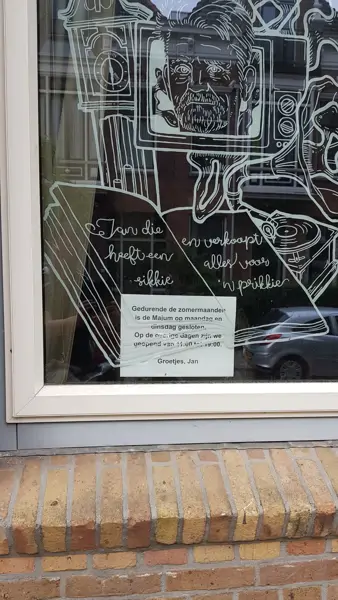 Jan die
heeft een
sikkie
en verkoopt
alles voor
'n prikkie
Gedurende de zomermaanden
is de Majum op maandag en
dinsdag gesloten.
Op de overige dagen zijn we
geopend van 11:00 tot
Groetjes, Jan